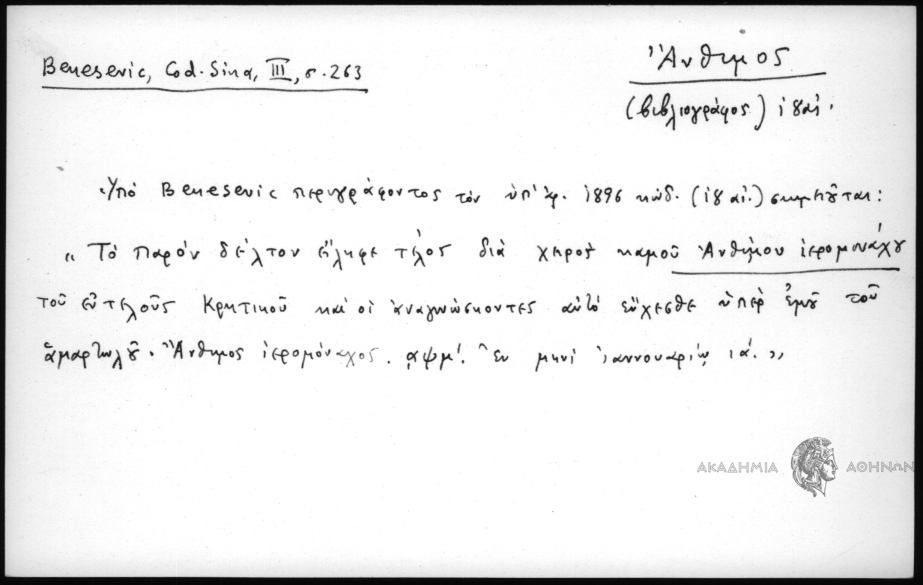 Benesevic, Cod. Sina, III, σ. 263
Ἄνθιμος
(βιβλιογράφος) ιηαἰ.
Ὑπό Benesevic περιγράφοντος τόν ὑπ' ἀρ. 1896 κώδ. (ιηαἰ.) σημειοῦται:
« Τό παρόν δέλτον εἴληφε τέλος διά χειρός καμοῦ Ἀνθίμου ἱερομονάχου
τοῦ εὐτελοῦς Κρητικοῦ καί οἱ ἀναγινώσκοντες αὐτό εὔχεσθε ὑπέρ ἐμοῦ τοῦ
ἁμαρτωλοῦ. Ἄνθιμος ἱερομόναχος. ͵αψμ΄. Ἐν μηνί ἰαννουαρίῳ ια΄. »
ΑΚΑΔΗΜΙΑ ΑΘΗΝΩΝ